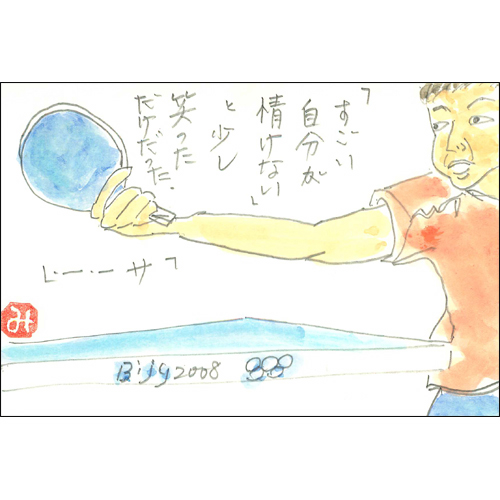 「すごい
自分が
情けない」
と少し
笑った
だけだった.
「サー・ー」
み
2008